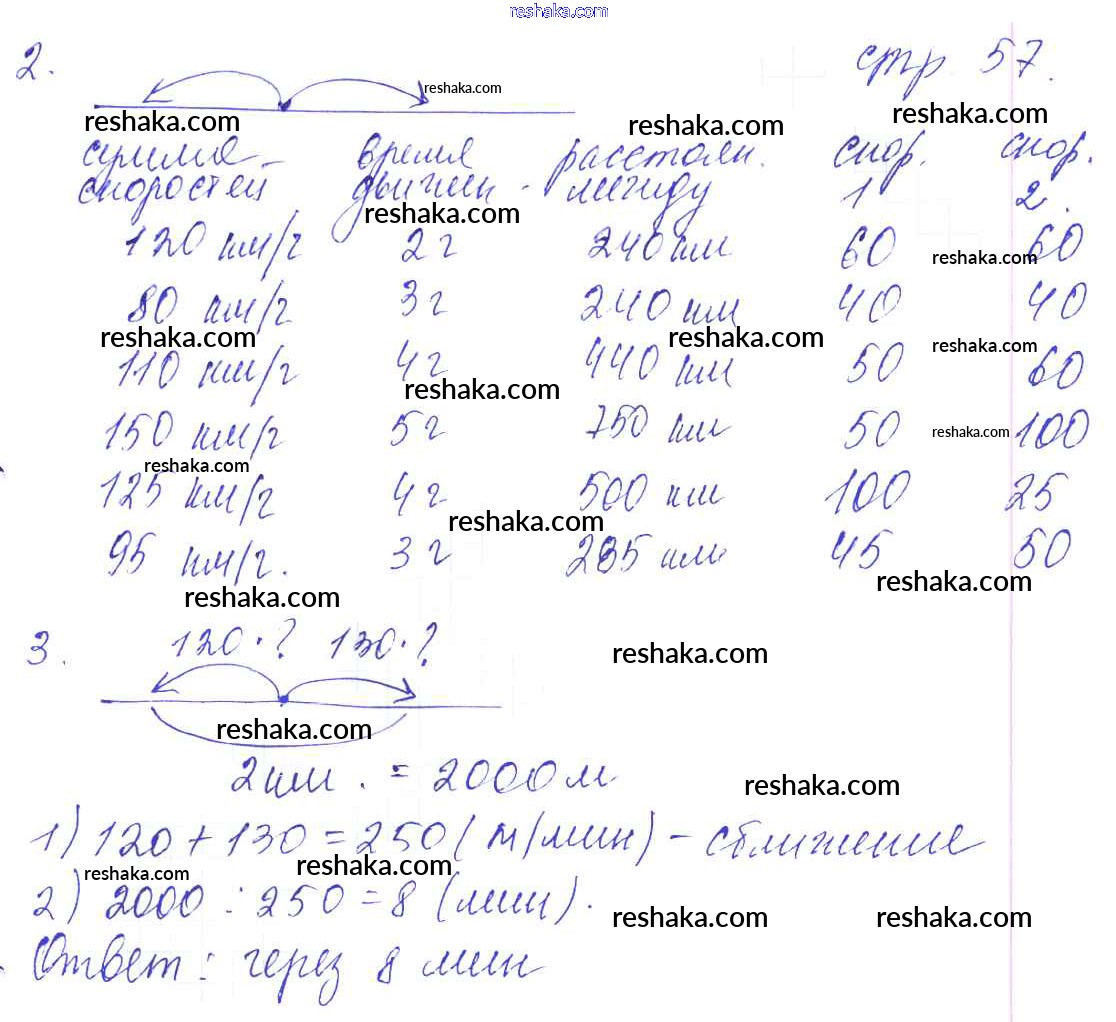 reshaka.com
2. стр. 57.
reshaka.com
reshaka.com reshaka.com reshaka.com
сумма время расстоян. скор. скор.
скоростей движен. между 1 2.
reshaka.com
120 км/ч 2 ч 240 км 60 60
reshaka.com
80 км/ч 3 ч 240 км 40 40
reshaka.com reshaka.com reshaka.com
110 км/ч 4 ч 440 км 50 60
reshaka.com
150 км/ч 5 ч 750 км 50 100
reshaka.com
reshaka.com
125 км/ч 4 ч 500 км 100 25
reshaka.com
95 км/ч. 3 ч 285 км 45 50
reshaka.com reshaka.com
3. 120·? 130·?
reshaka.com
reshaka.com
2 км. = 2000 м
reshaka.com
1) 120 + 130 = 250 (м/мин) - сближение
reshaka.com reshaka.com
2) 2000 : 250 = 8 (мин).
reshaka.com reshaka.com
Ответ: через 8 мин